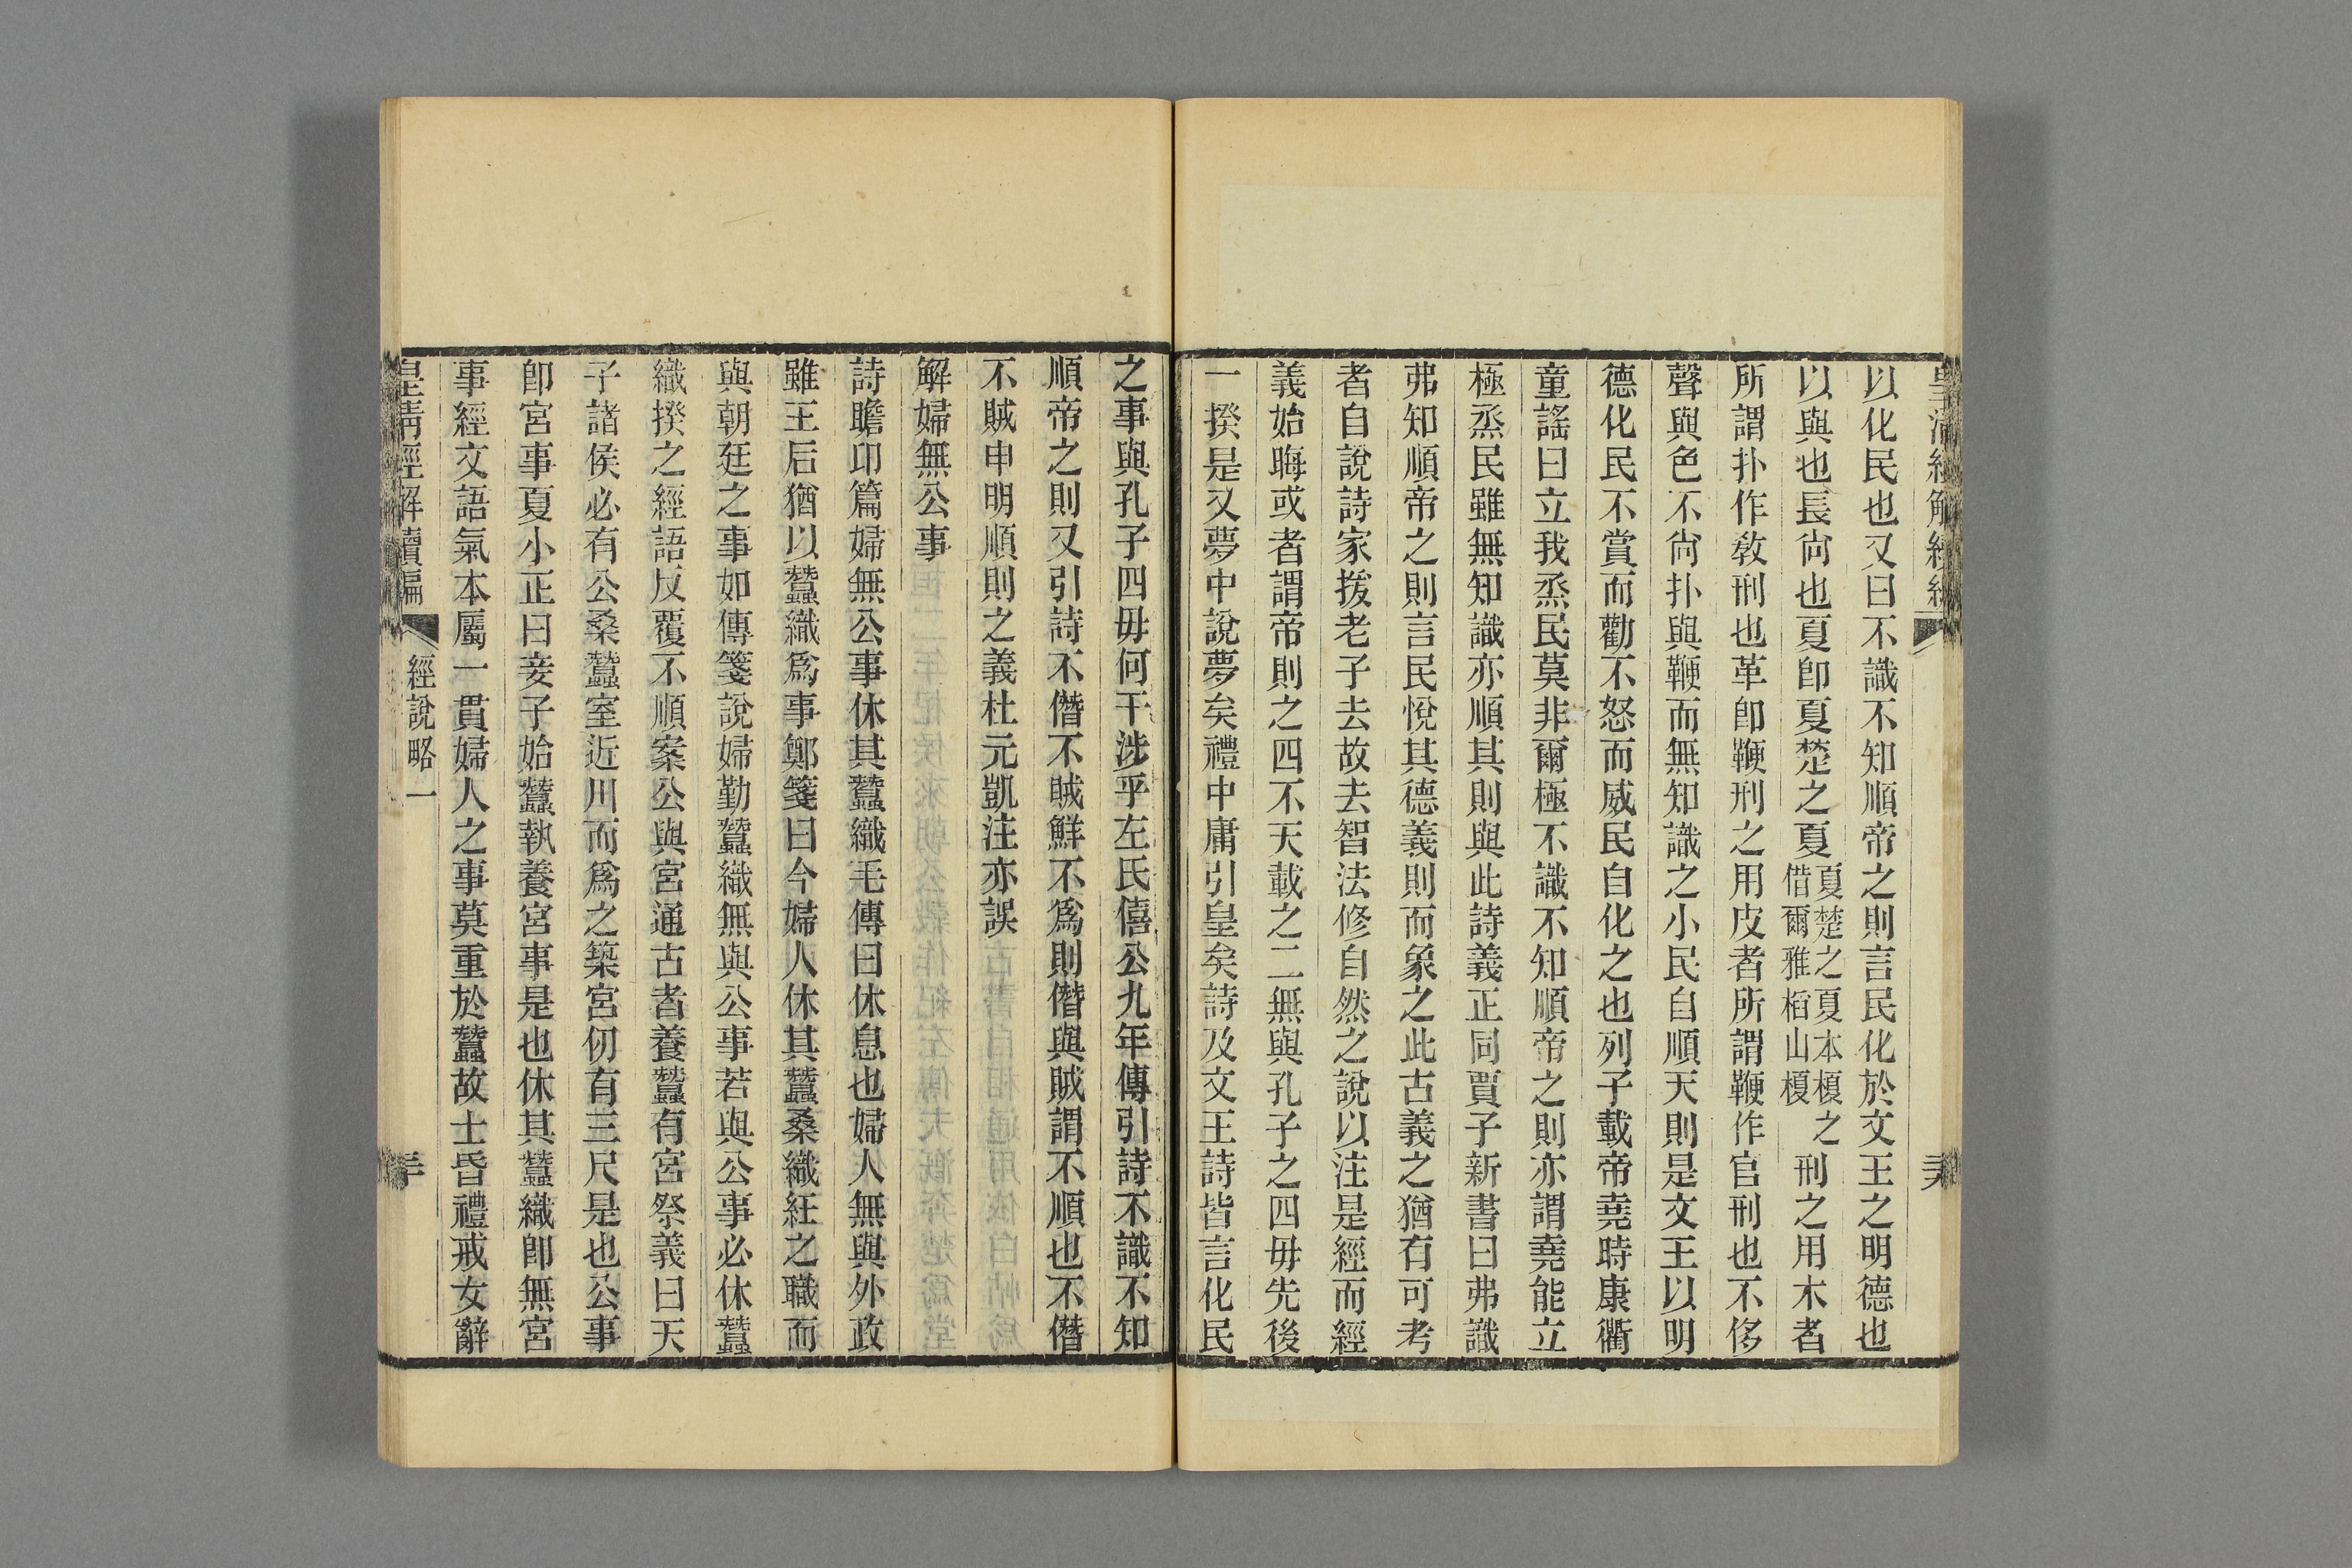 以化民也又曰不識不知順帝之則言民化於文王之明德也
以與也長尙也夏卽夏楚之夏夏楚之夏本榎之借爾雅栢山榎刑之用木者
所謂扑作敎刑也革卽鞭刑之用皮者所謂鞭作官刑也不侈
聲與色不尙扑與鞭而無知識之小民自順天則是文王以明
德化民不賞而勸不怒而威民自化之也列子載帝堯時康衢
童謠曰立我烝民莫非爾極不識不知順帝之則亦謂堯能立
極烝民雖無知識亦順其則與此詩義正同賈子新書曰弗識
弗知順帝之則言民悅其德義則而象之此古義之猶有可考
者自說詩家援老子去故去智法修自然之說以注是經而經
義始晦或者謂帝則之四不天載之二無與孔子之四毋先後
一揆是又夢中說夢矣禮中庸引皇矣詩及文王詩皆言化民
之事與孔子四毋何干涉乎左氏僖公九年傳引詩不識不知
順帝之則又引詩不僭不賊鮮不爲則僭與賊謂不順也不僭
不賊申明順則之義杜元凱注亦誤
解婦無公事
詩瞻卬篇婦無公事休其蠶織毛傳曰休息也婦人無與外政
雖王后猶以蠶織爲事鄭箋曰今婦人休其蠶桑織紝之職而
與朝廷之事如傳箋說婦勤蠶織無與公事若與公事必休蠶
織揆之經語反覆不順案公與宮通古者養蠶有宮祭義曰天
子諸侯必有公桑蠶室近川而爲之築宮仞有三尺是也公事
卽宮事夏小正曰妾子始蠶執養宮事是也休其蠶織卽無宮
事經文語氣本屬一貫婦人之事莫重於蠶故士昏禮戒女辭
皇淸經解續編 經說略一